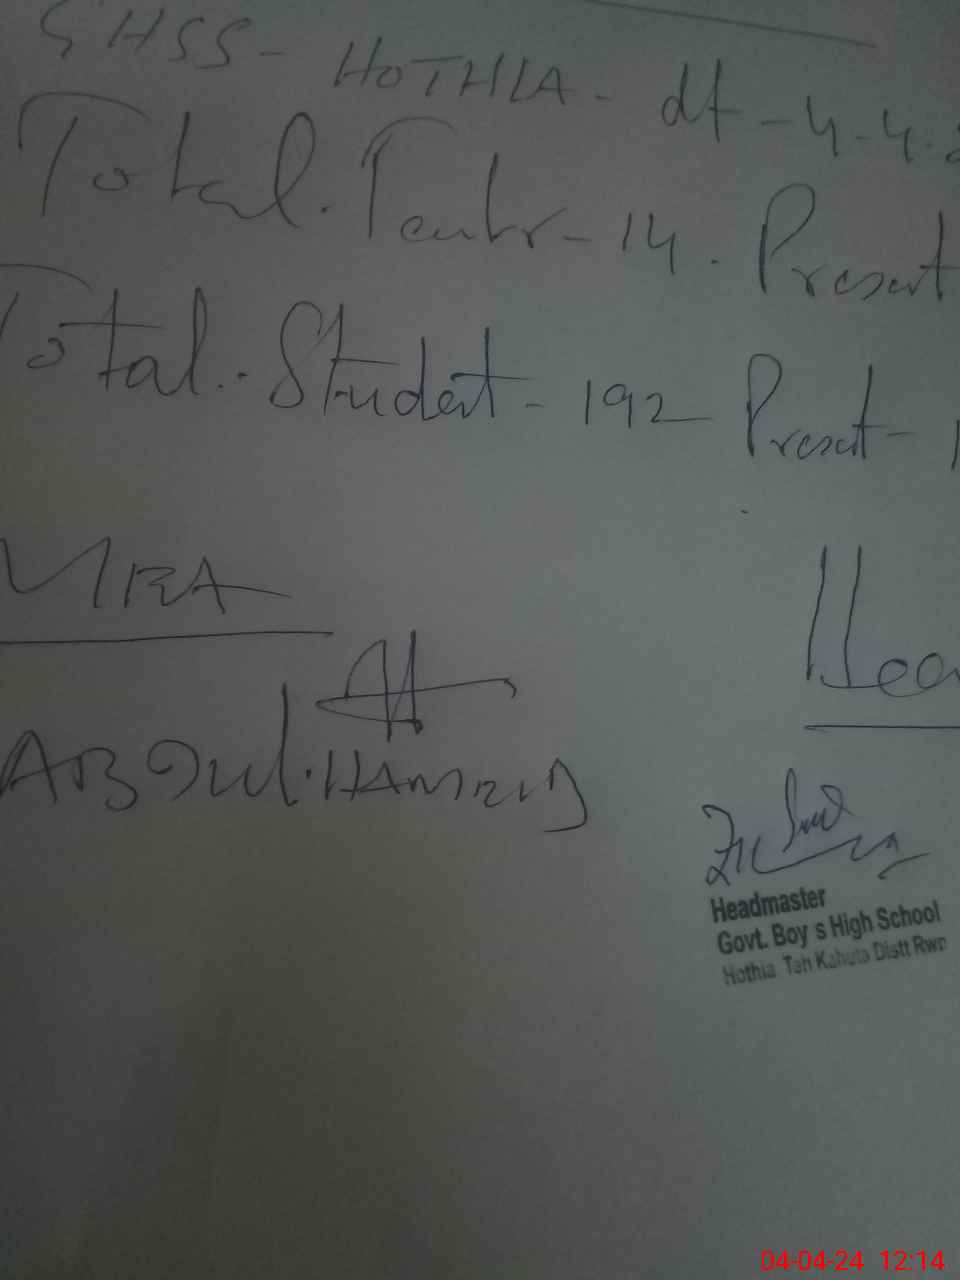 GHSS - HOTHLA - dt - 4.4.2
Total. Teachr - 14. Present
Total. Student - 192 Present - 1
MEA
Hea
ABDUL HAMEED
Headmaster
Govt. Boy s High School
Hothia Teh Kahuta Distt Rwp
04-04-24 12:14